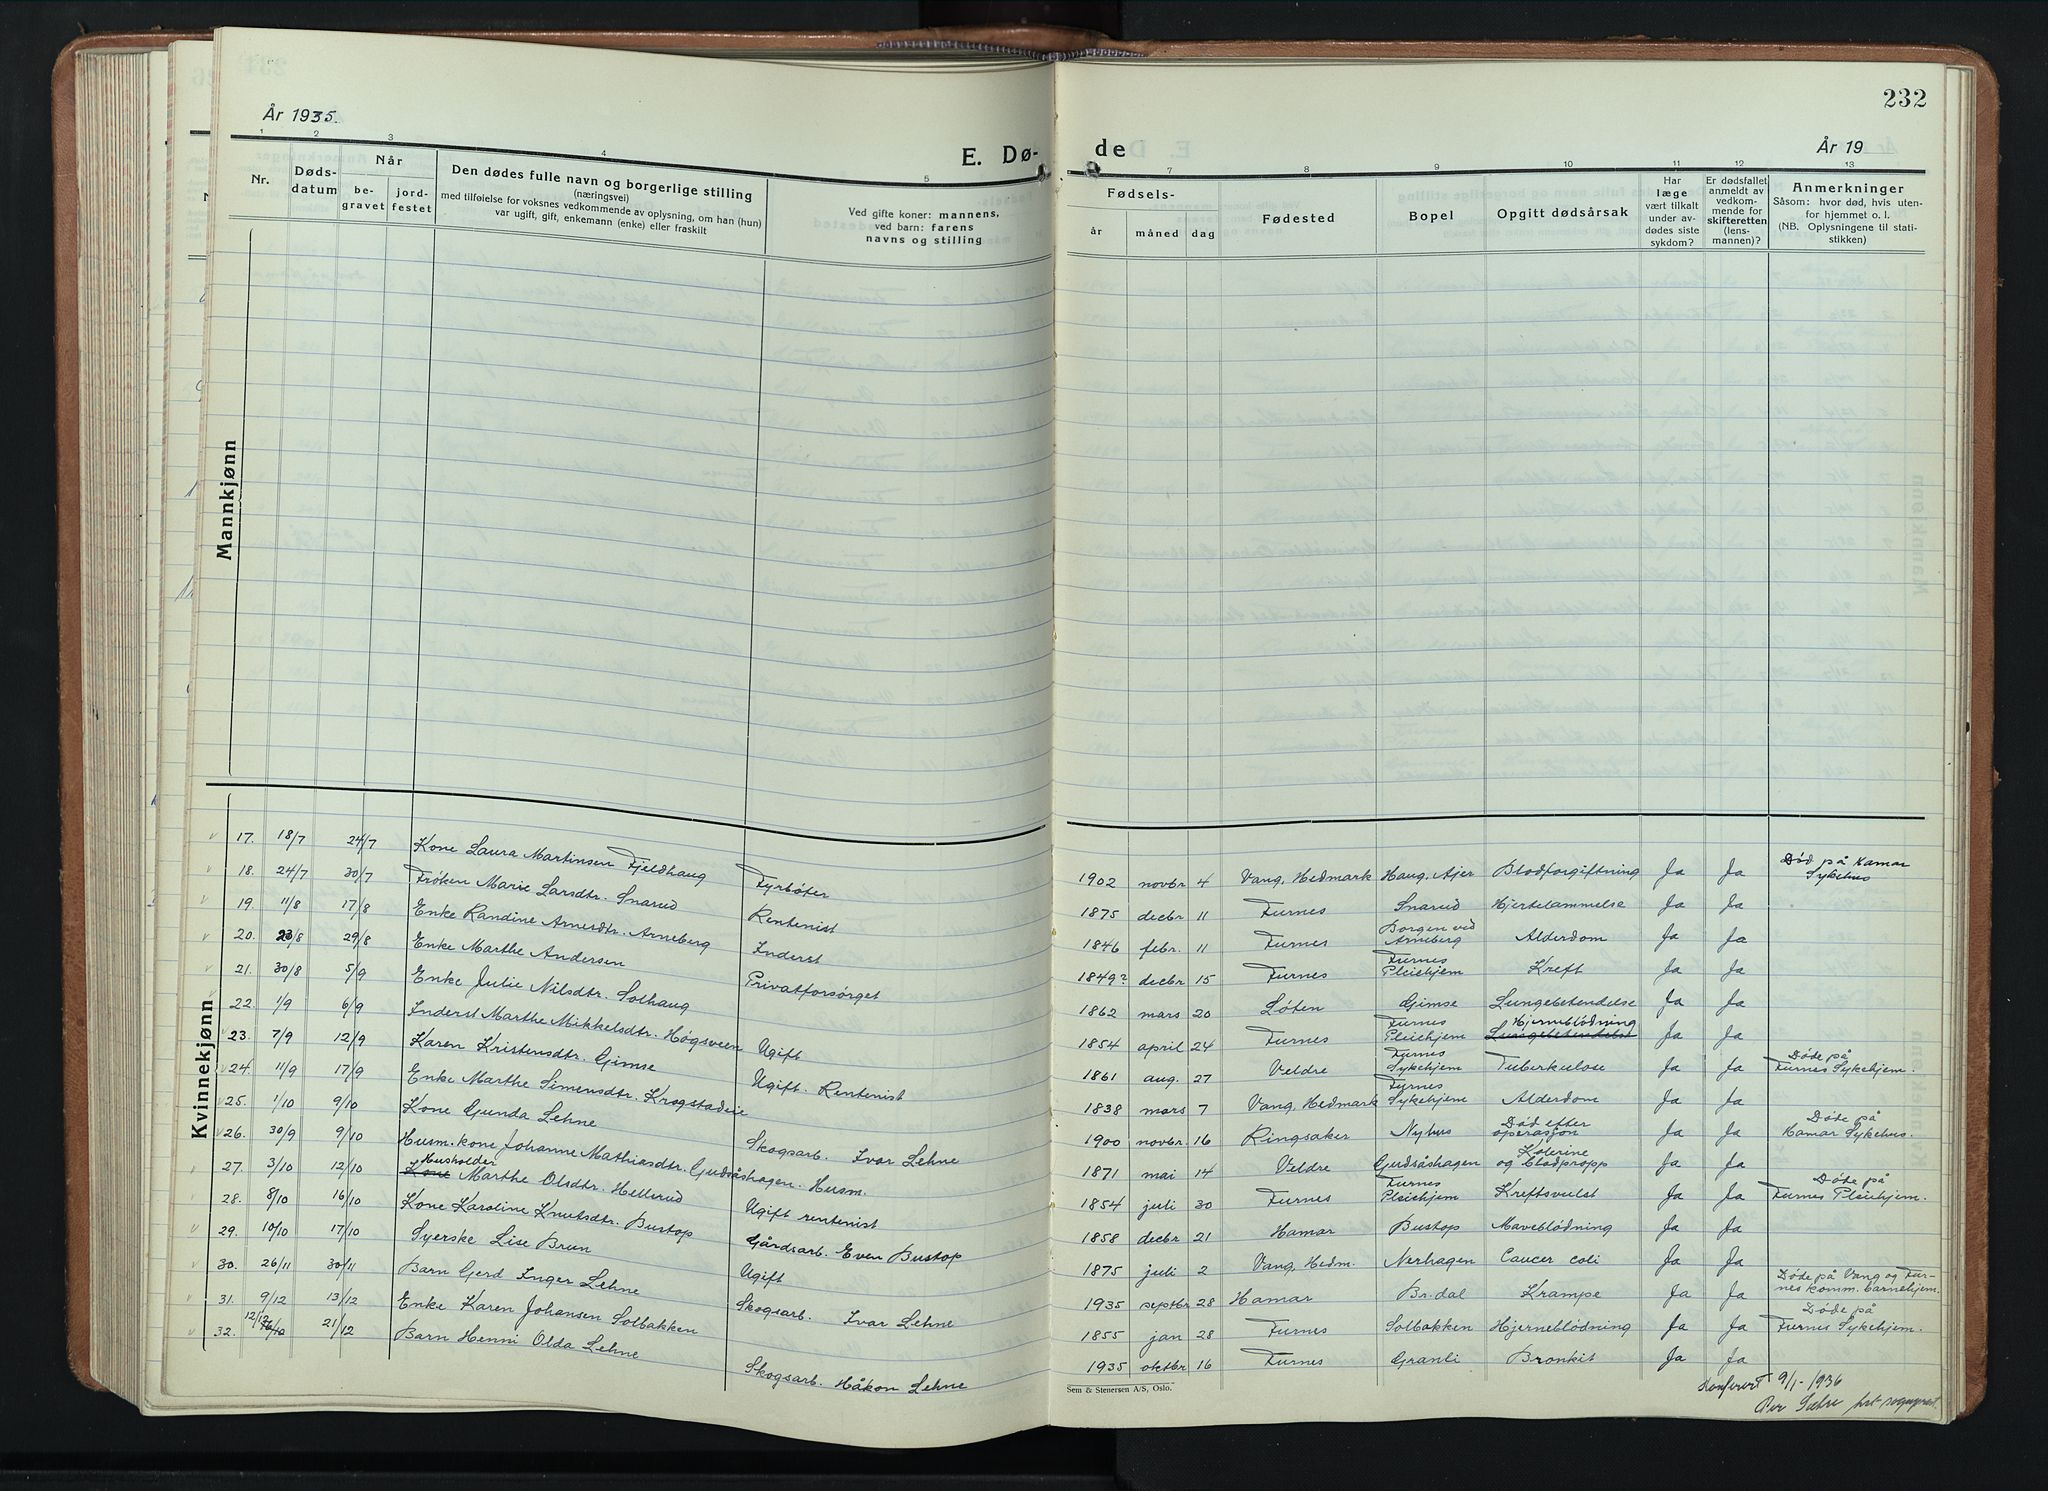 232
År 1935.
E. Dø-
de
År 19
1 2 3 4 5 7 8 9 10 11 12 13
Nr.
Døds-
datum
Når
be-
gravet
jord-
festet
Den dødes fulle navn og borgerlige stilling
(næringsvei)
med tilføielse for voksnes vedkommende av oplysning, om han (hun)
var ugift, gift, enkemann (enke) eller fraskilt
Ved gifte koner: mannens,
ved barn: farens
navns og stilling
Fødsels-
år måned dag
Fødested
Bopel
Opgitt dødsårsak
Har
læge
vært tilkalt
under av-
dødes siste
sykdom?
Er dødsfallet
anmeldt av
vedkom-
mende for
skifteretten
(lens-
mannen)?
Anmerkninger
Såsom: hvor død, hvis uten-
for hjemmet o. l.
(NB. Oplysningene til stati-
stikken)
Mannkjønn
Kvinnekjønn
17. 18/7 24/7 Kone Laura Martinsen Fjeldhaug Fyrbøter 1902 novbr 4 Vang, Hedmark Haug, Ajer Blodforgiftning Ja Ja Død på Hamar Sykehus
18. 24/7 30/7 Frøken Marie Larsdtr. Snarud Rentenist 1875 decbr 11 Furnes Snarud Hjertelammelse Ja Ja
19. 11/8 17/8 Enke Randine Arnesdtr. Arneberg Inderst 1846 febr. 11 Furnes Borgen ved Arneberg Alderdom Ja Ja
20. 23/8 29/8 Enke Marthe Andersen Privatforsørget 1849? decbr 15 Furnes Furnes Pleiehjem Kreft Ja Ja
21. 30/8 5/9 Enke Julie Nilsdtr. Solhaug 1862 mars 20 Løten Gimse Lungebetendelse Ja Ja
22. 1/9 6/9 Inderst Marthe Mikkelsdtr. Høgsveen Ugift 1854 april 24 Furnes Furnes Pleiehjem Hjerneblødning Lungebetendelse Ja Ja
23. 7/9 12/9 Karen Kristensdtr. Gimse Ugift. Rentenist 1861 aug. 27 Veldre Furnes Sykehjem Tuberkulose Ja Ja Døde på Furnes Sykehjem.
24. 11/9 17/9 Enke Marthe Simensdtr. Krogstadeie 1838 mars 7 Vang, Hedmark Furnes Sykehjem Alderdom Ja Ja
25. 1/10 9/10 Kone Gunda Lehne Skogsarb. Ivar Lehne 1900 novbr. 16 Ringsaker Nyhus Død efter operasjon Ja Ja Døde på Hamar Sykehus.
26. 30/9 9/10 Husm. kone Johanne Mathiasdtr. Gudsåshagen. Husm. 1871 mai 14 Veldre Gudsåshagen Kolerine og blodpropp Ja Ja
27. 3/10 12/10 Husholder Kone Marthe Olsdtr. Hellerud Ugift rentenist 1854 juli 30 Furnes Furnes Pleiehjem Kreftsvulst Ja Ja Døde på Furnes Pleiehjem.
28. 8/10 16/10 Kone Karoline Knutsdtr. Bustop Gårdsarb. Even Bustop 1858 decbr 21 Hamar Bustop Maveblødning Ja Ja
29. 10/10 17/10 Syerske Lise Brun Ugift 1875 juli 2 Vang, Hedm. Nerhagen Caucer coli Ja Ja
30. 26/11 30/11 Barn Gerd Inger Lehne Skogsarb. Ivar Lehne 1935 septbr 28 Hamar Br.dal Krampe Ja Ja Døde på Vang og Furnes komm. barnehjem.
31. 9/12 13/12 Enke Karen Johansen Solbakken 1855 jan 28 Furnes Solbakken Hjerneblødning Ja Ja Døde på Furnes Sykehjem.
32. 12/12 21/12 Barn Henni Olda Lehne Skogsarb. Håkon Lehne 1935 oktbr 16 Furnes Granli Bronkit Ja Ja
Sem & Stenersen A/S, Oslo.
Konferert 9/1-1936
Per Sæhre